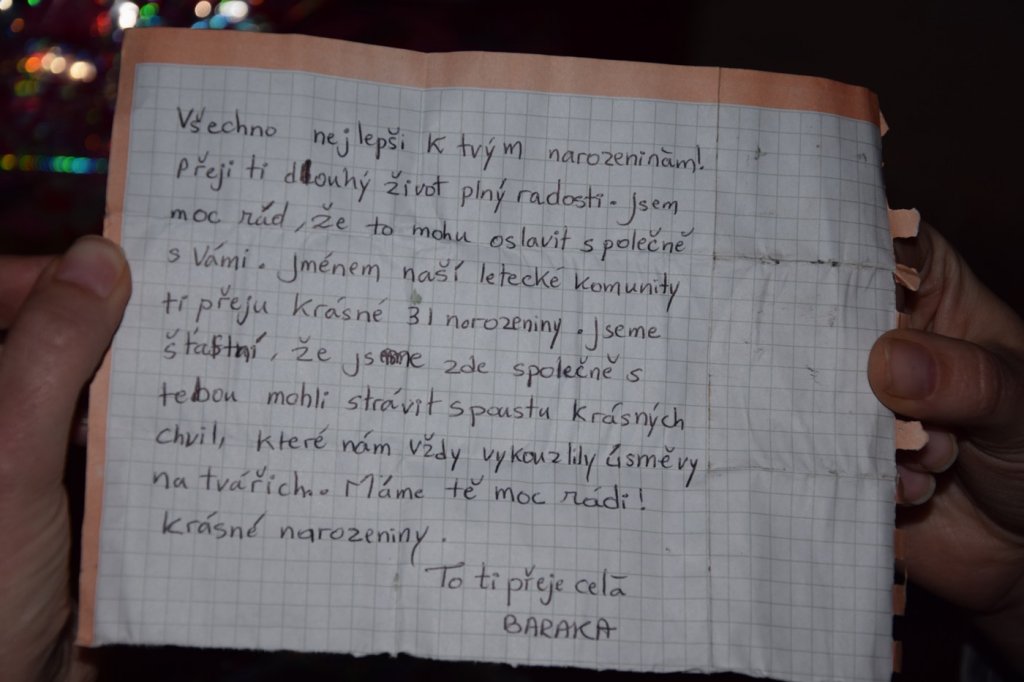 Všechno nejlepši k tvým narozeninám!
Přeji ti dlouhý život plný radosti. Jsem
moc rád, že to mohu oslavit společně
s Vámi. Jménem naší letecké komunity
ti přeju krásné 31 norozeniny. Jseme
štastní, že jsme zde společně s
tebou mohli strávit spoustu krásných
chvil, které nám vždy vykouzlily úsměvy
na tvářich. Máme tě moc rádi!
Krásné narozeniny.
To ti přeje celā
BARAKA